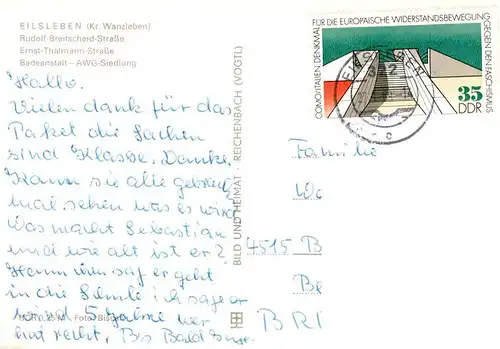 EILSLEBEN (Kr. Wanzleben)
Rudolf-Breitscheid-Straße
Ernst-Thälmann-Straße
Badeanstalt – AWG-Siedlung
Hallo.
Vielen dank für das
Paket die Sachen
sind Klasse. Danke.
Kann sie alle
mal sehen was es wird
Was macht Sebastian
und wie alt ist er?
er geht
in die Schule ich sage er
wird 5 Jahre wer
hat recht. Bis Bald
BILD UND HEIMAT · REICHENBACH (VOGTL)
FÜR DIE EUROPÄISCHE WIDERSTANDSBEWEGUNG
GEGEN DEN FASCHISMUS
COMO/ITALIEN DENKMAL
35
DDR
EILSLEBEN
Familie
4515 B
Be